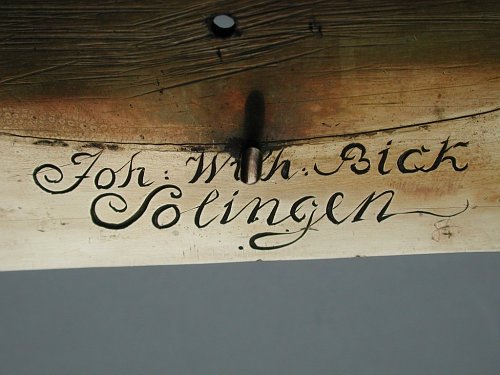 Joh: Wilh: Bick
Solingen